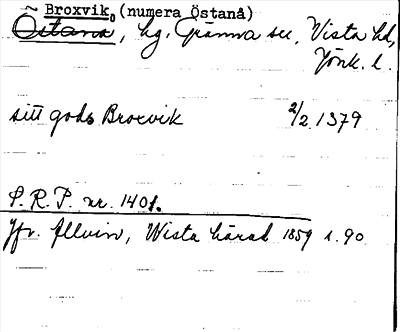 ~ Broxvik, (numera Östanå)
Östanå, hg. Gränna sn, Vista hd,
Jönk. l.
sitt gods Brocvik 2/2 1379
S.R.P. nr. 1401.
Jfr. Allvin, Wista härad 1859 s. 90